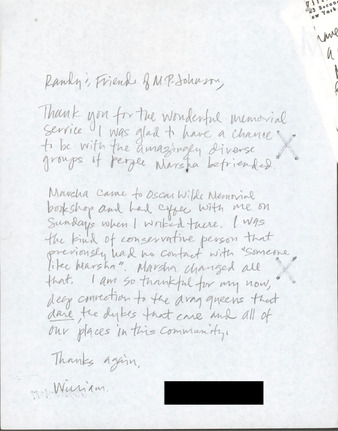 Randy's, Friends of M.P. Johnson,
Thank you for the wonderful memorial
service. I was glad to have a chance
to be with the amazingly diverse
groups of people Marsha befriended.
Marsha came to Oscar Wilde Memorial
bookshop and had coffee with me on
Sundays when I worked there. I was
the kind of conservative person that
previously had no contact with "someone
like Marsha". Marsha changed all
that. I am so thankful for my now,
deep connection to the drag queens that
dare, the dykes that care and all of
our places in this community.
Thanks again,
William
New York
have
a